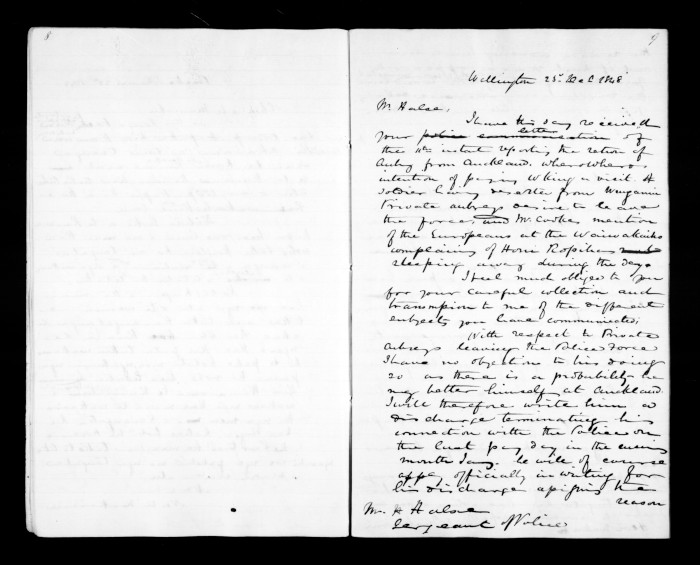 8
9
Wellington 23rd Dec 1848
Mr Halse,
I have this day received
your police communication letter of
the 11th instant reporting the return of
Aubrey from Auckland.
intention of paying Wking a visit. A
Soldier having deserted from Wanganui
Private Aubreys desire to leave
the force; and Mr Cookes mention
of the Europeans at the Waiwakaiho
complaining of Honi Ropihas
sleeping away during the day.
I feel much obliged to you
for your careful collection and
transmission to me of the different
subjects you have communicated;
With respect to Private
Aubreys leaving the Police Force
I have no objection to his doing
so as there is a probability he
may better himself at Auckland.
I will therefore write him a
discharge terminating his
connection with the Police on
the last pay day in the
month Jany. he will of course
apply officially in writing for
his discharge the
reason
Mr H Halse
Sergeant of Police